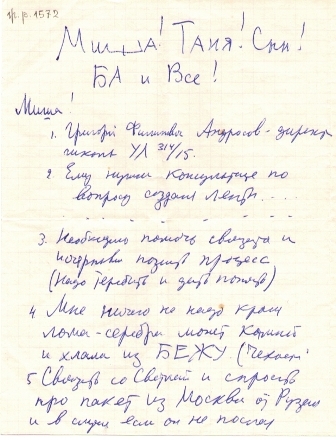 1/г. р. 1572
Миша! Таня! Сын!
БА и Все!
Миша!
1. Григорий Филиппович Андросов - директ
школы УЛ 314/15.
2 Ему нужна консультация по
вопросу создания ленты....
3. Необходимо помочь связать и
позицию процесс
(Надо теребить и дать понять)
4 Мне ничего не надо кроме
лома-серебра может камней
и хлама из БЕЖУ (Чекасс
5 Связать со Светой и спросить
про пакет из Москвы от Рузаны
и в случае если он не послан